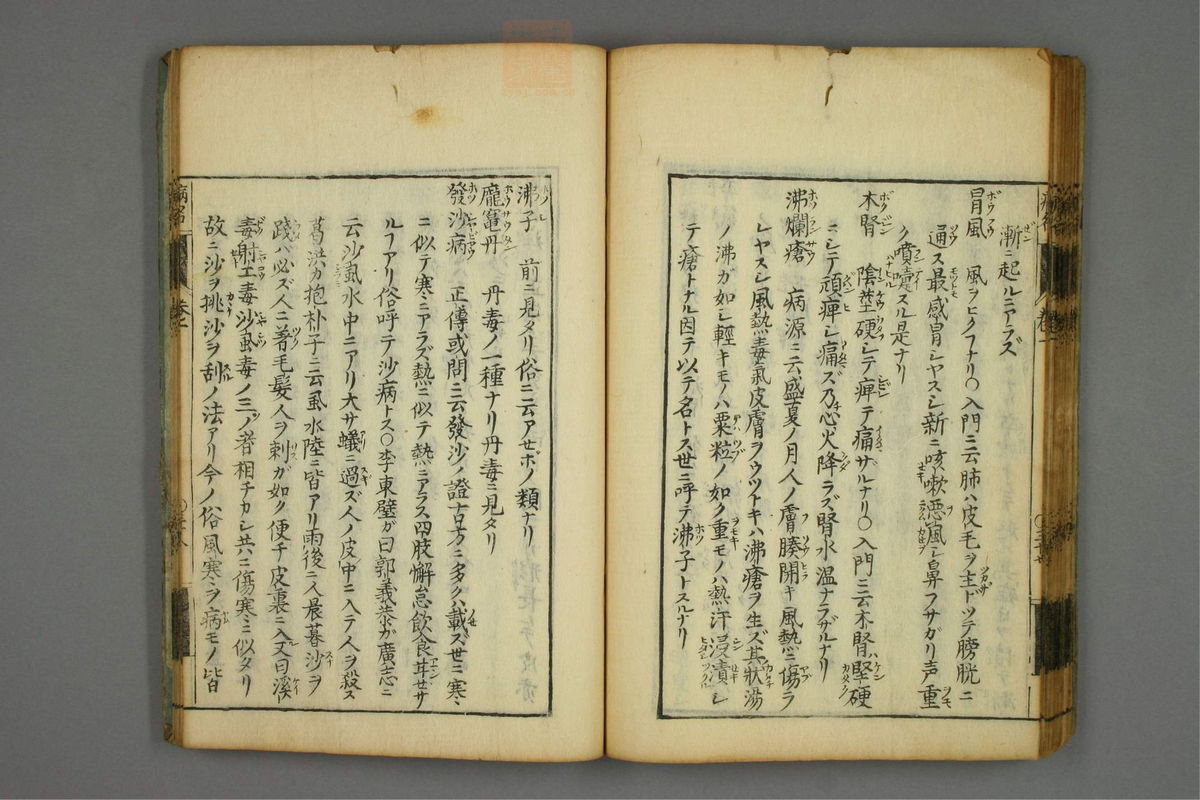 漸ニ起ルニアラズ
冒風　風ヲヒクフナリ〇入門ニ云肺ハ皮毛ヲ主ドツテ膀胱ニ
通ス最感冒シヤスシ新ニ咳嗽悪風シ鼻フサガリ声重
ク噴嚔スル是ナリ
木腎　陰莖硬シテ痺テ痛サルナリ〇入門ニ云木腎ハ堅硬
ニシテ頑痺シ痛ズ乃心火降ラズ腎水温ナラザルナリ
沸爛瘡　病源ニ云盛夏ノ月人ノ膚腠開キ風熱ニ傷ラ
レヤスシ風熱毒氣皮膚ヲウツトキハ沸瘡ヲ生ズ其狀湯
ノ沸ガ如シ輕キモノハ粟粒ノ如ク重モノハ熱汗浸漬シ
テ瘡トナル因テ以テ名トス世ニ呼テ沸子トスルナリ
沸子　前ニ見タリ俗ニ云アセボノ類ナリ
龐竃丹　丹毒ノ一種ナリ丹毒ニ見タリ
發沙病　正傳或問ニ云發沙ノ證古方ニ多クハ載ス世ニ寒
ニ似テ寒ニアラズ熱ニ似テ熱ニアラス四肢懈怠飲食甘セサ
ルフアリ俗呼テ沙病トス〇李東壁ガ曰郭義恭ガ廣志ニ
云沙虱水中ニアリ大サ蟻ニ過ズ人ノ皮中ニ入テ人ヲ殺ス
葛洪カ抱朴子ニ云虱水陸ニ皆アリ雨後ニ人晨暮沙ヲ
踐ハ必ズ人ニ著毛髮人ヲ刺ガ如ク便チ皮裏ニ入又曰溪
毒射工毒沙虱毒ノ三ツノ者相チカシ共ニ傷寒ニ似タリ
故ニ沙ヲ挑沙ヲ刮ノ法アリ今ノ俗風寒ヲ病モノ皆